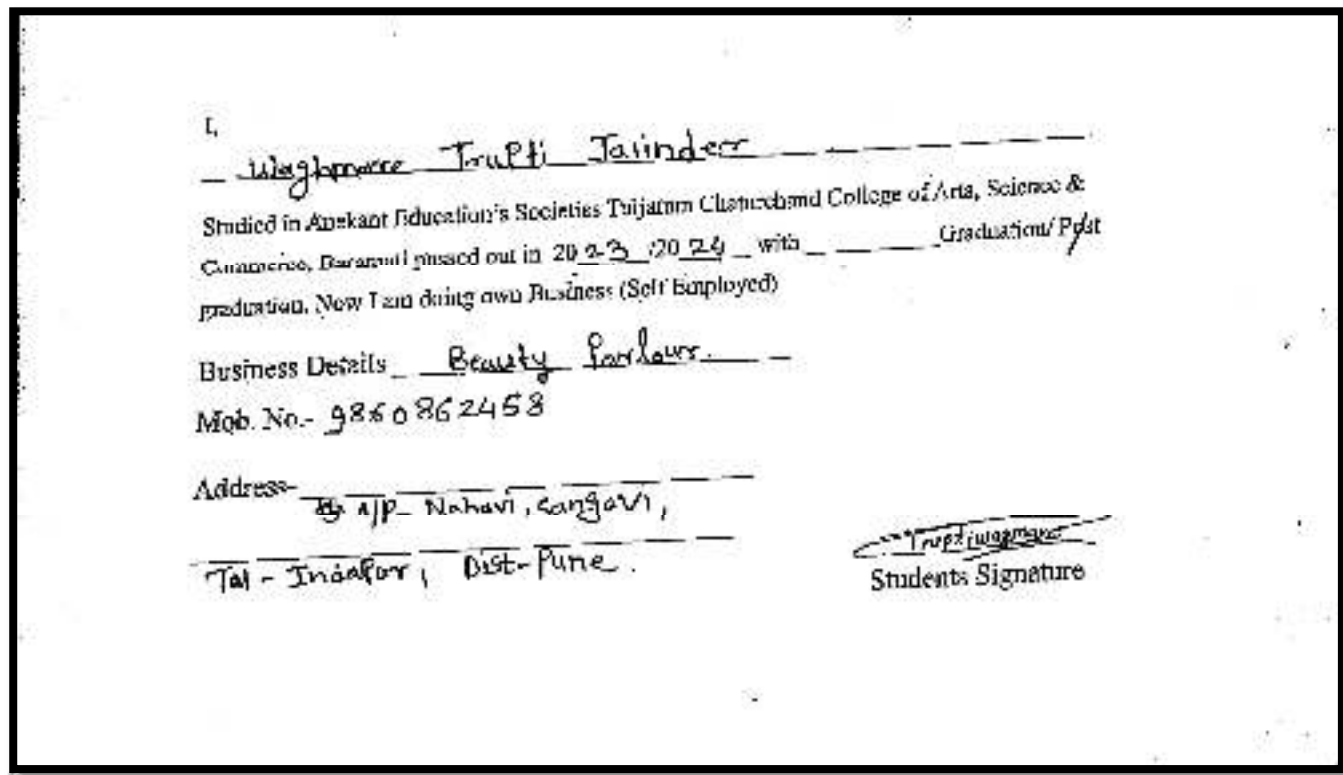 I,
Waghmare Trupti Jalinder
Studied in Anekant Education's Societies Tuljaram Chaturchand College of Arts, Science &
Commerce, Baramati passed out in 2023/2024 with ____ Graduation/ Post
graduation. Now I am doing own Business (Self Employed)
Business Details Beauty Parlour.
Mob. No.- 9860862458
Address-
A/p Nahavi, Sangavi,
Tal - Indapur, Dist-Pune.
Trupti
Students Signature